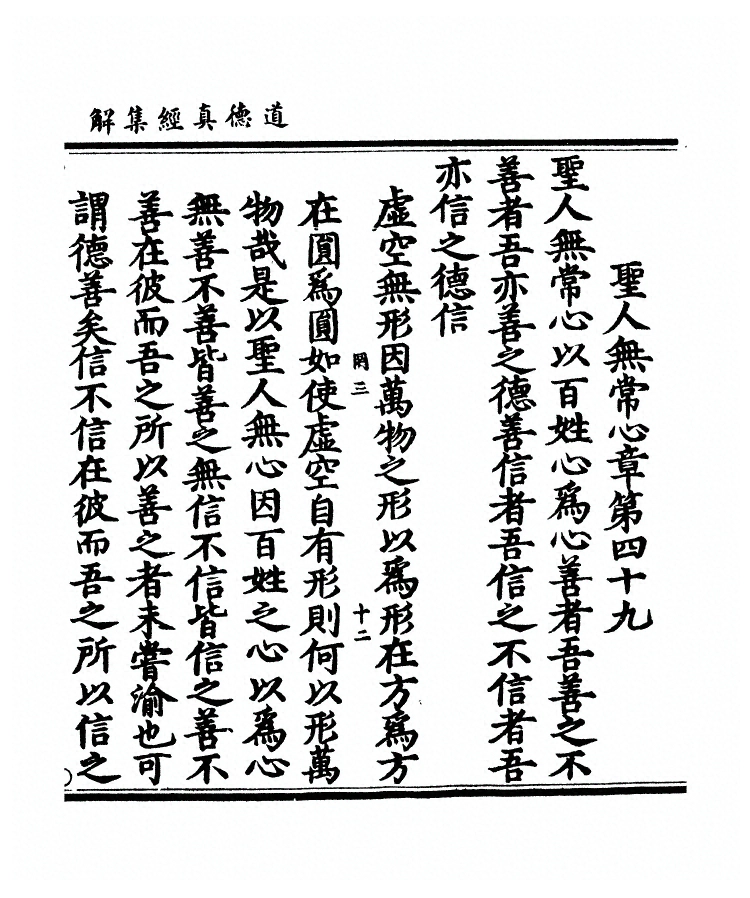 道德真經集解
聖人無常心章第四十九
聖人無常心以百姓心爲心善者吾善之不
善者吾亦善之德善信者吾信之不信者吾
亦信之德信
虛空無形因萬物之形以爲形在方爲方
罔三 十二
在圓爲圓如使虛空自有形則何以形萬
物哉是以聖人無心因百姓之心以爲心
無善不善皆善之無信不信皆信之善不
善在彼而吾之所以善之者未嘗渝也可
謂德善矣信不信在彼而吾之所以信之